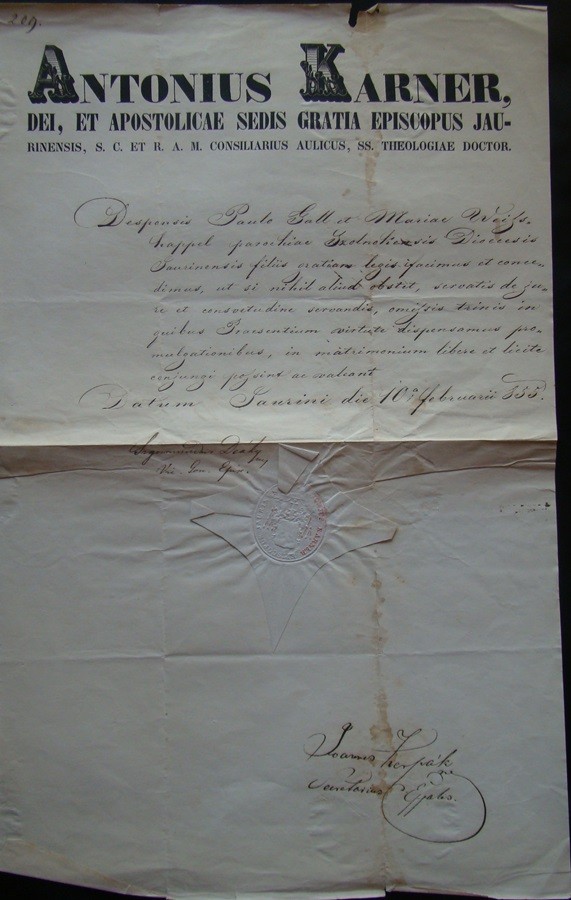 209.
ANTONIUS KARNER,
DEI, ET APOSTOLICAE SEDIS GRATIA EPISCOPUS JAU-
RINENSIS, S. C. ET R. A. M. CONSILIARIUS AULICUS, SS. THEOLOGIAE DOCTOR.
Desponsis Paulo Gall et Mariae Weifs-
happel parochiae Diöecesis
Jaurinensis filiis gratiam facimus et conce-
dimus, ut si nihil aliud obstet, servatis de ju-
re et consvetudine servandis, omifsis trinis in
quibus Praesentium virtute dispensamus pro-
mulgationibus, in matrimonium libere et licite
conjungi pofsint ac valeant
Datum Jaurini die 10a februarii 855.
Deáky
Vic. Gen. Eppi.
Joannes Korpák
Secretarius Eppalis.